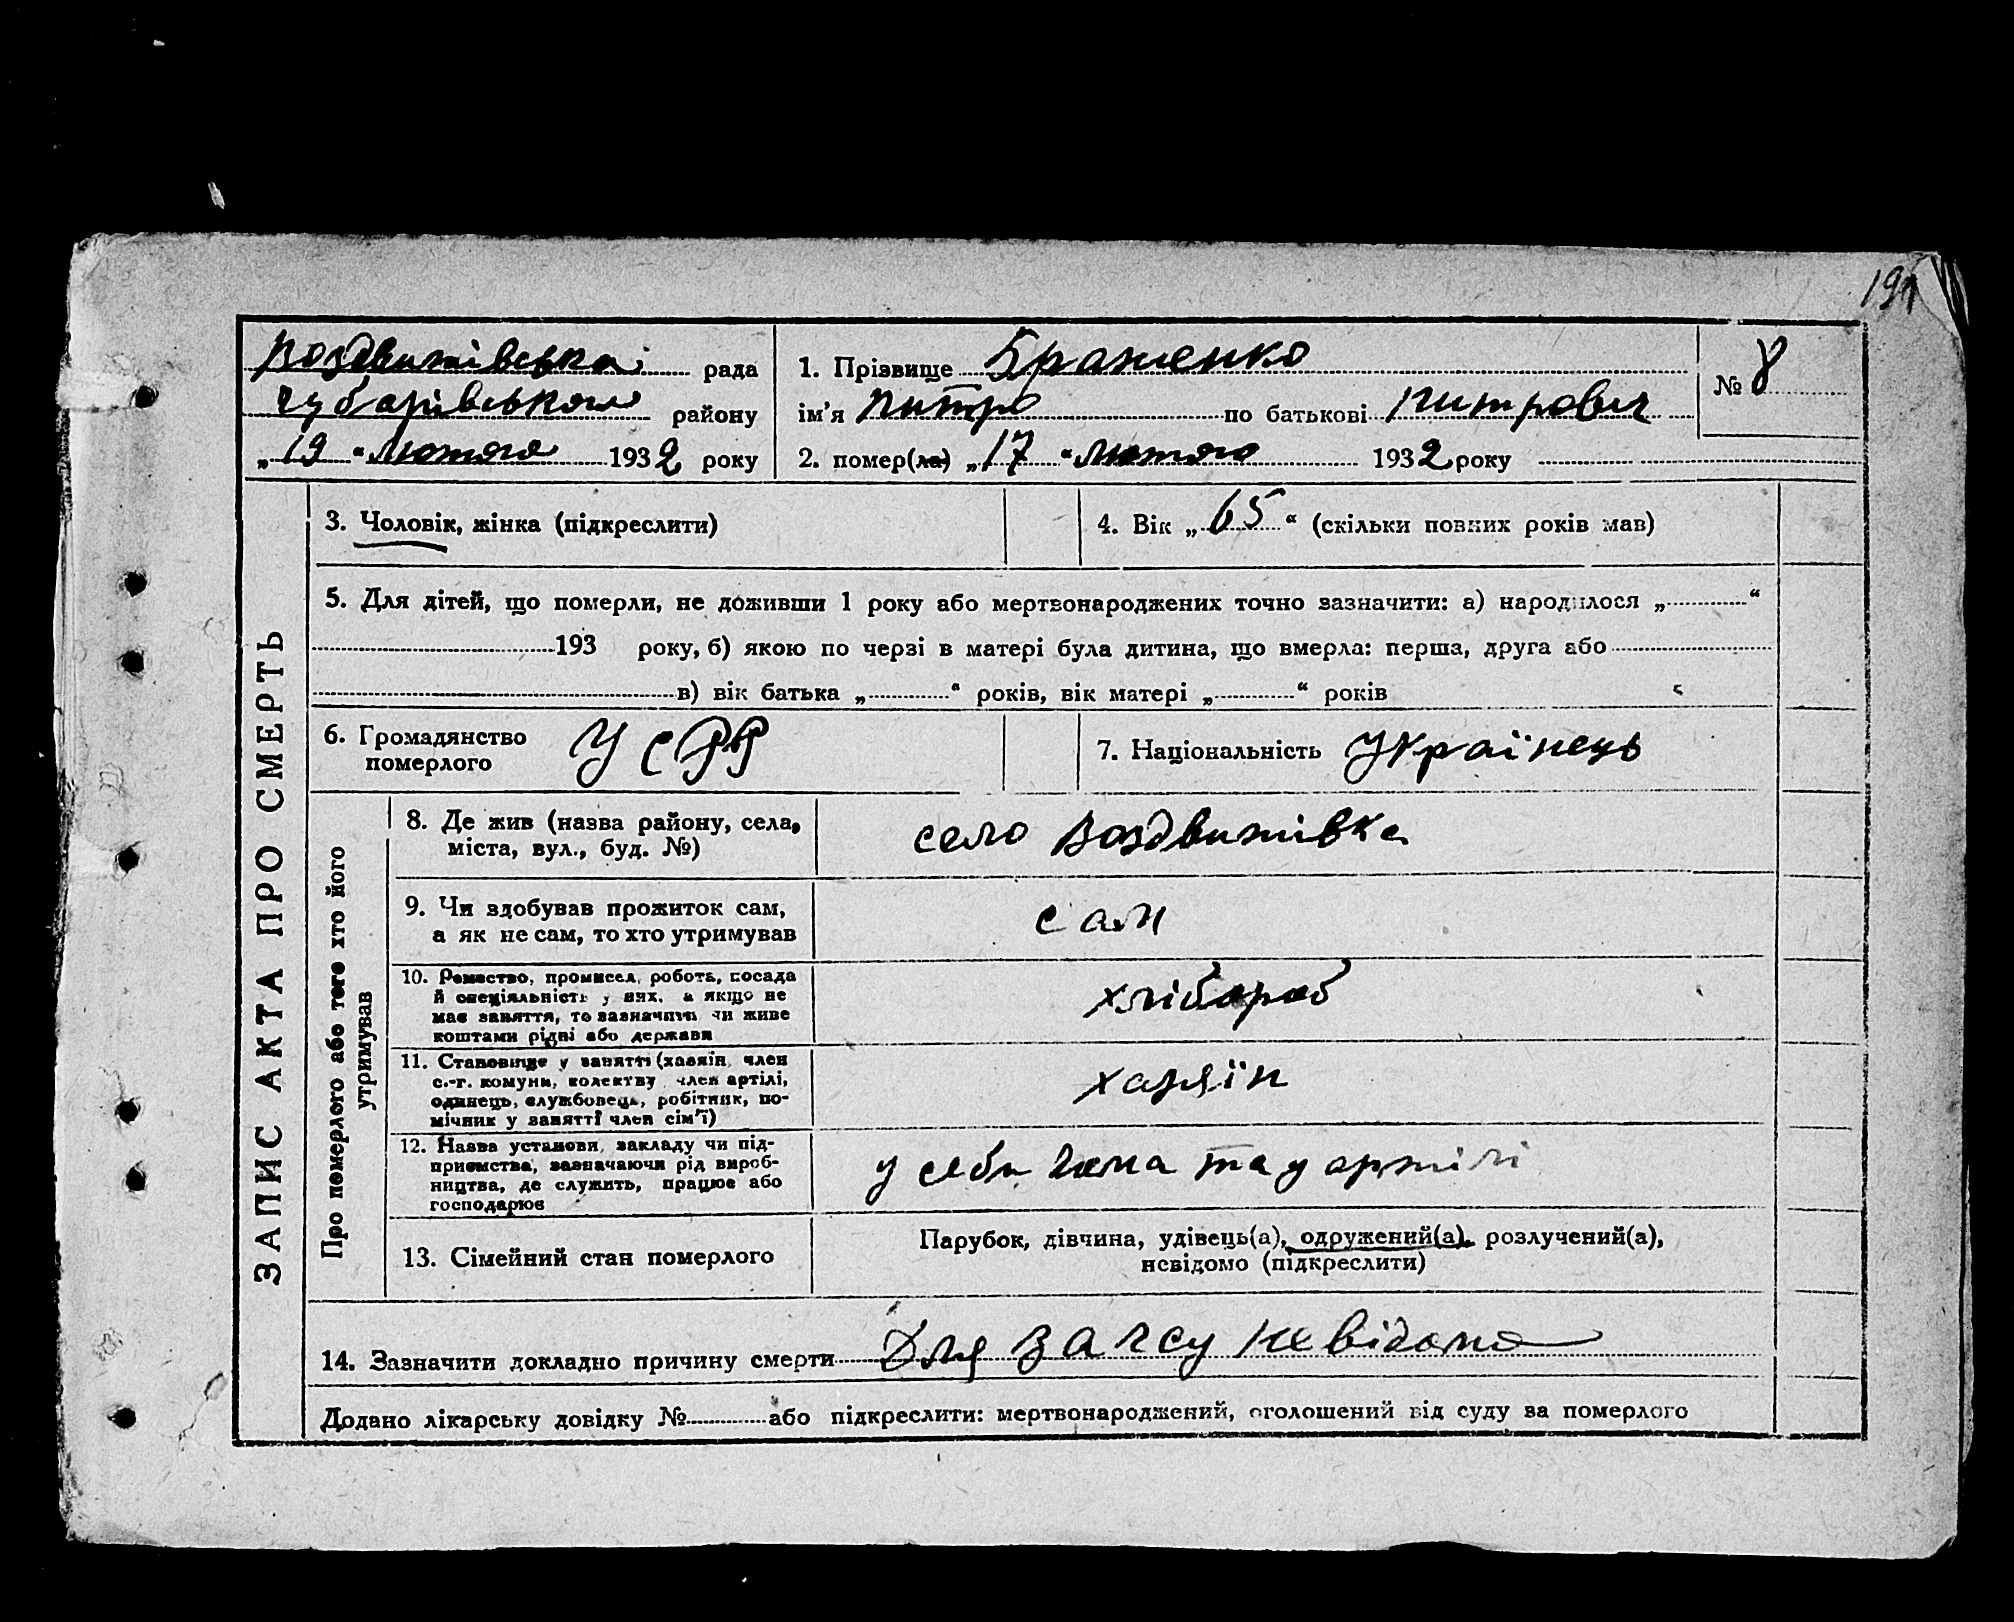 191
Воздвижівська рада
Чубарівського району
„19“ лютого 1932 року
1. Прізвище Браженко
ім’я Питро по батькові Питрович
№ 8
2. помер(ла) „17“ лютого 1932 року
ЗАПИС АКТА ПРО СМЕРТЬ
3. Чоловік, жінка (підкреслити)
4. Вік „65“ (скільки повних років мав)
5. Для дітей, що померли, не доживши 1 року або мертвонароджених точно зазначити: а) народилося „ “
193 року, б) якою по черзі в матері була дитина, що вмерла: перша, друга або
в) вік батька „ “ років, вік матері „ “ років
6. Громадянство
померлого
УСРР
7. Національність Українець
Про померлого або того хто його
утримував
8. Де жив (назва району, села,
міста, вул., буд. №)
село Воздвижівка
9. Чи здобував прожиток сам,
а як не сам, то хто утримував
сам
10. Ремество, промисел, робота, посада
й спеціяльність у них, а якщо не
має заняття, то зазначити чи живе
коштами рідні або держави
хлібороб
11. Становище у занятті (хазяїн, член
с.-г. комуни, колективу, член артілі,
одинець, службовець, робітник, по-
мічник у занятті член сім’ї)
хазяїн
12. Назва установи, закладу чи під-
приємства, зазначаючи рід вироб-
ництва, де служить, працює або
господарює
у себе дома та у артілі
13. Сімейний стан померлого
Парубок, дівчина, удівець(а), одружений(а), розлучений(а),
невідомо (підкреслити)
14. Зазначити докладно причину смерти Для загсу невідома
Додано лікарську довідку № або підкреслити: мертвонароджений, оголошений від суду за померлого